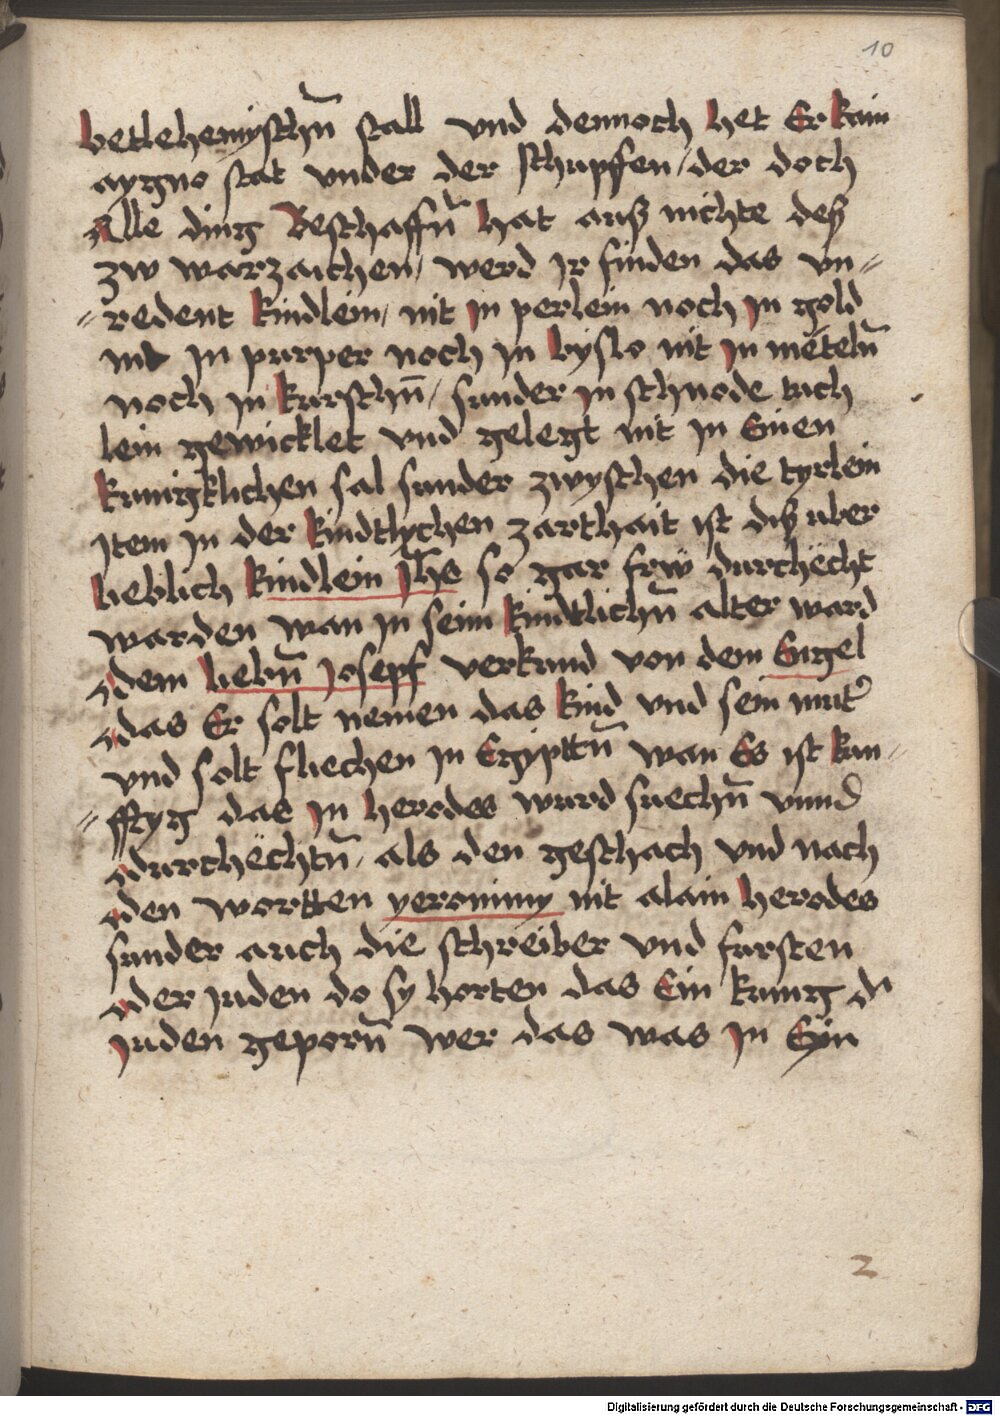 10
betlehemyschn̄ stall vnd dennoch het Er kain
aygno stat vnder der schupffen / der doch
Alle ding Beschaffn̄ hat auß nichte deß
zw warzaichen / werd Jr finden das vn=
=redent kindlein / nit in perlein noch Jn gold
nit Jn purper noch Jn byslo nit Jn meteln̄
noch Jn kurschn̄ / sunder Jn schnode tuch
lein gewicklet vnd gelegt nit Jn Einen
kunigklichen sal sunder zwyschen die tyrlein
Jtem Jn der kindtlychen zarthait ist diß uber
lieblich kindlein Jhs so gar frw durchëcht
warden wan Jn seim kindtlichn̄ alter ward
dem liebn̄ Josepf verkund von dem Engel
das Er solt nemen das kind vnd sein mut̉
vnd solt fliechen Jn Egiptn̄ wan Es ist kun=
=fftyg das Jn herodes wurd suechn̄ vnnd
durchëchtn̄ / als den geschach vnd nach
den wortten yeronimy nit alain herodes
sunder auch die schreiber vnd fursten
der Juden do sy horten das Ein kunig d̉
Juden geporn̄ wer das was Jn Eyn
2
Digitalisierung gefördert durch die Deutsche Forschungsgemeinschaft - DFG